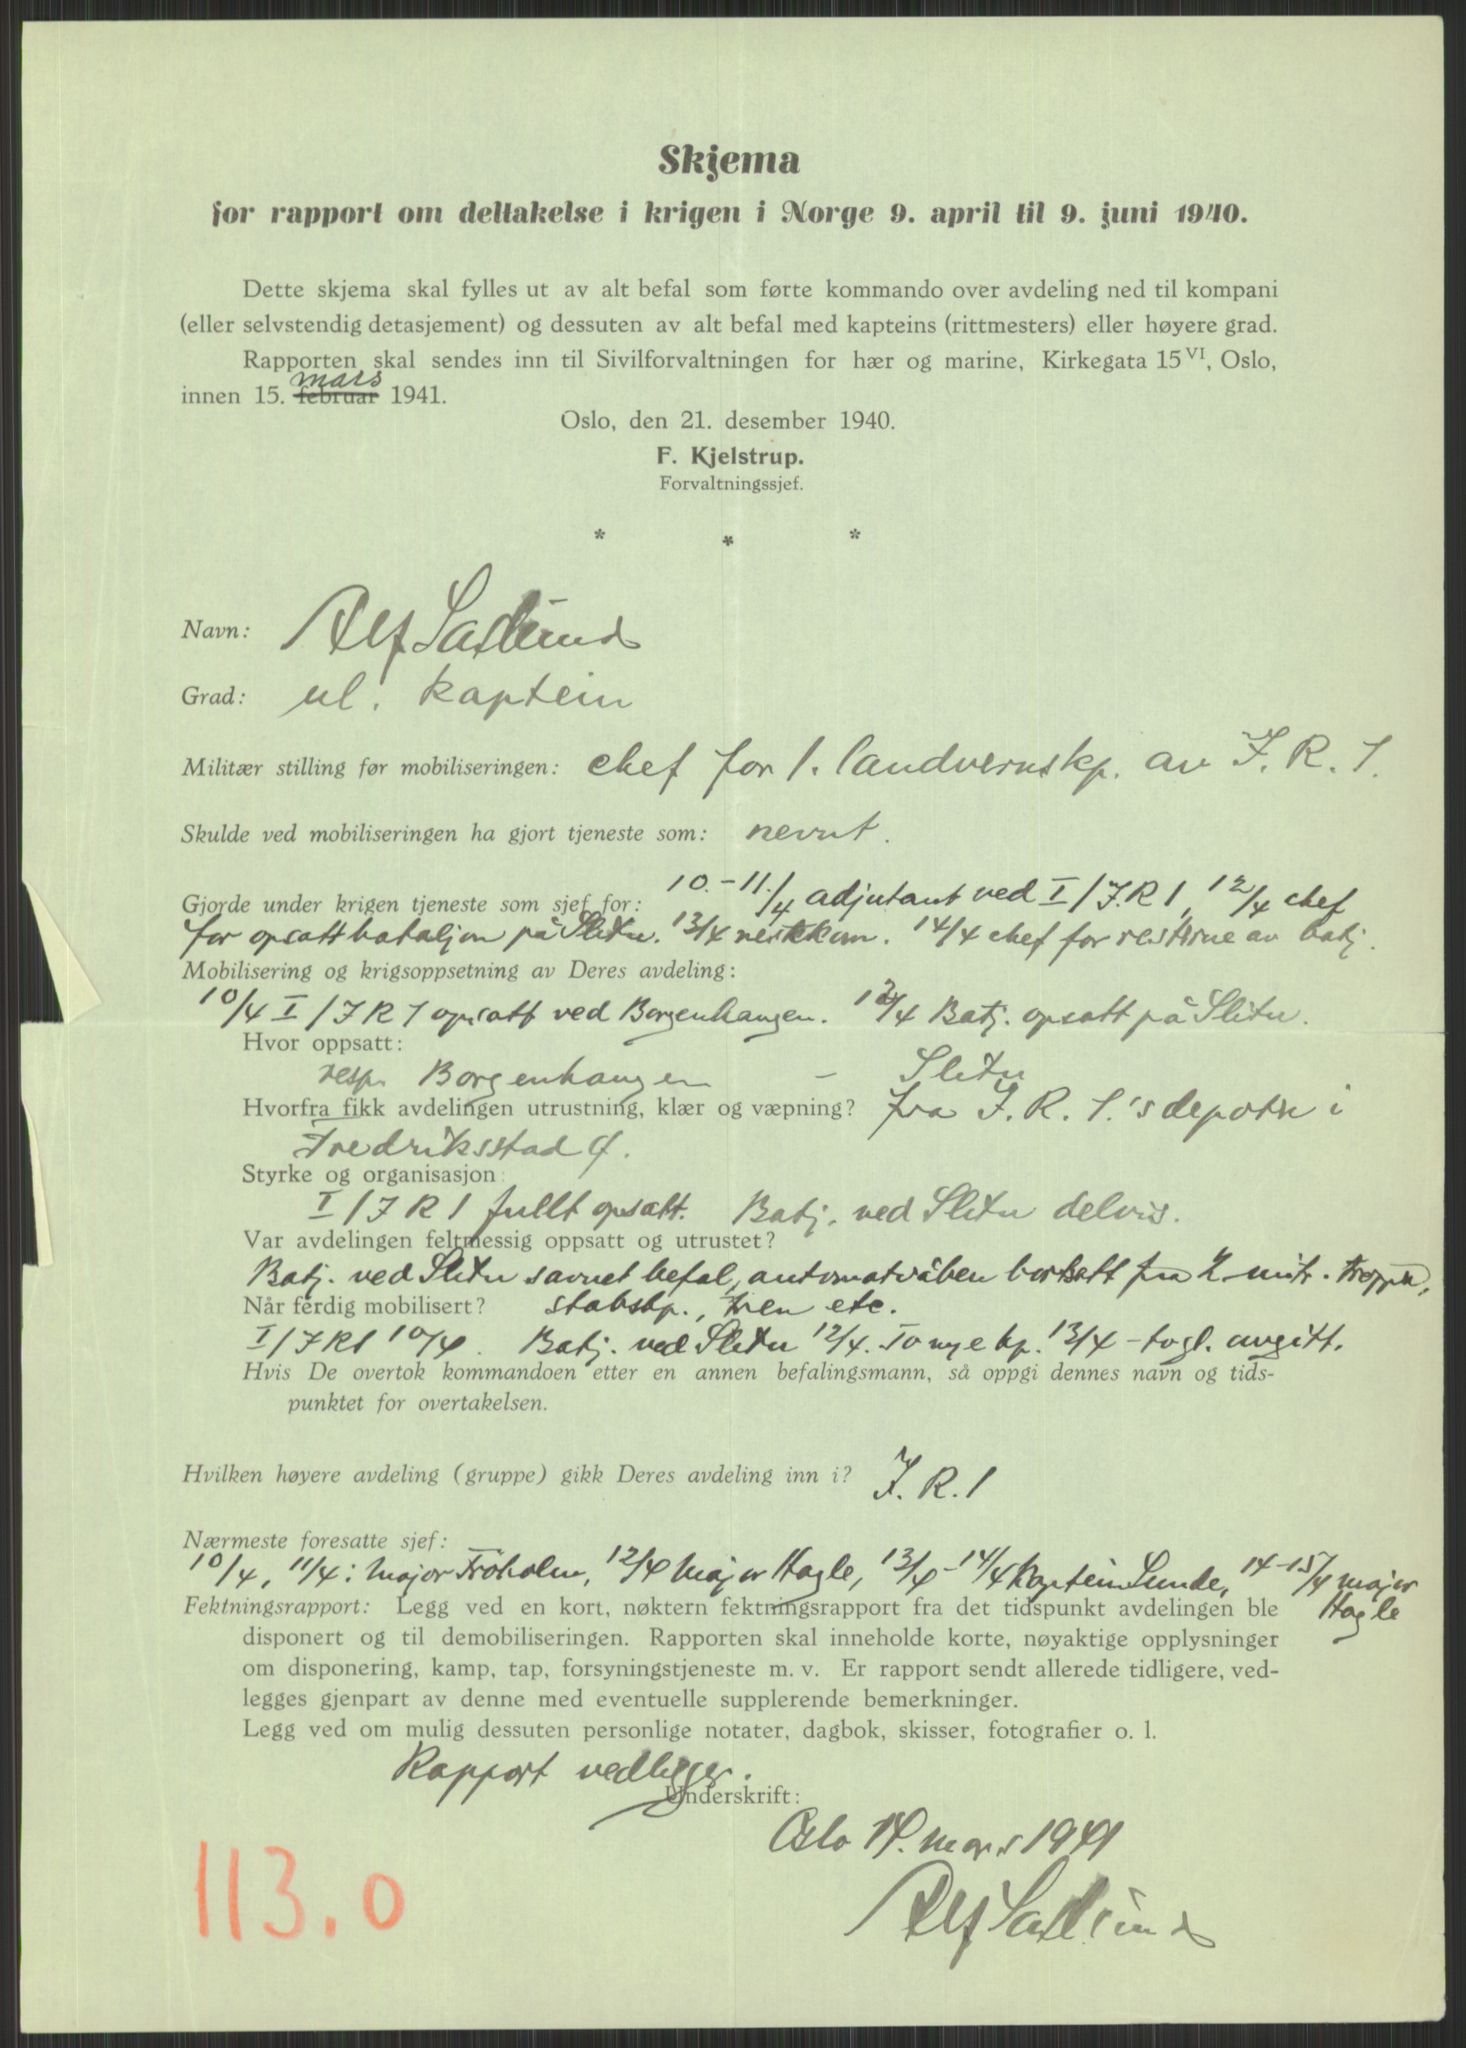 Skjema
for rapport om deltakelse i krigen i Norge 9. april til 9. juni 1940.
Dette skjema skal fylles ut av alt befal som førte kommando over avdeling ned til kompani
(eller selvstendig detasjement) og dessuten av alt befal med kapteins (rittmesters) eller høyere grad.
Rapporten skal sendes inn til Sivilforvaltningen for hær og marine, Kirkegata 15 VI, Oslo,
mars
innen 15. februar 1941.
Oslo, den 21. desember 1940.
F. Kjelstrup.
Forvaltningssjef.
* * *
Navn: Alf
Grad: ul. kaptein
Militær stilling før mobiliseringen: chef for 1. landvernskp. av I. R. 1.
Skulde ved mobiliseringen ha gjort tjeneste som: nevnt.
Gjorde under krigen tjeneste som sjef for: 10.-11./4 adjutant ved I/I.R 1, 12/4 chef
for opsatt bataljon på Slitu. 13/4 nestkom. 14/4 chef for restene av batj.
Mobilisering og krigsoppsetning av Deres avdeling:
10/4 I/I R 1 opsatt ved Borgenhaugen. 12/4 Batj. opsatt på Slitu.
Hvor oppsatt:
resp. Borgenhaugen - Slitu
Hvorfra fikk avdelingen utrustning, klær og væpning? fra I. R. 1.'s depoter i
Fredriksstad
Styrke og organisasjon:
I/I R 1 fullt opsatt. Batj. ved Slitu delvis.
Var avdelingen feltmessig oppsatt og utrustet?
Batj. ved Slitu savnet befal, automatvåben bortsett fra 2 mitr. tropper,
Når ferdig mobilisert? stabskp., tren etc.
I/I R 1 10/4. Batj. ved Slitu 12/4. To nye kp. 13/4 - avgitt.
Hvis De overtok kommandoen etter en annen befalingsmann, så oppgi dennes navn og tids-
punktet for overtakelsen.
Hvilken høyere avdeling (gruppe) gikk Deres avdeling inn i? I. R. 1
Nærmeste foresatte sjef:
10/4, 11/4: Major Frøholm, 12/4 Major Hagle, 13/4-14/4 Kaptein Sunde, 14-15/4 major
Hagle
Fektningsrapport: Legg ved en kort, nøktern fektningsrapport fra det tidspunkt avdelingen ble
disponert og til demobiliseringen. Rapporten skal inneholde korte, nøyaktige opplysninger
om disponering, kamp, tap, forsyningstjeneste m. v. Er rapport sendt allerede tidligere, ved-
legges gjenpart av denne med eventuelle supplerende bemerkninger.
Legg ved om mulig dessuten personlige notater, dagbok, skisser, fotografier o. l.
Rapport vedlegger.
Underskrift:
Oslo 14. mars 1941
Alf
113.0